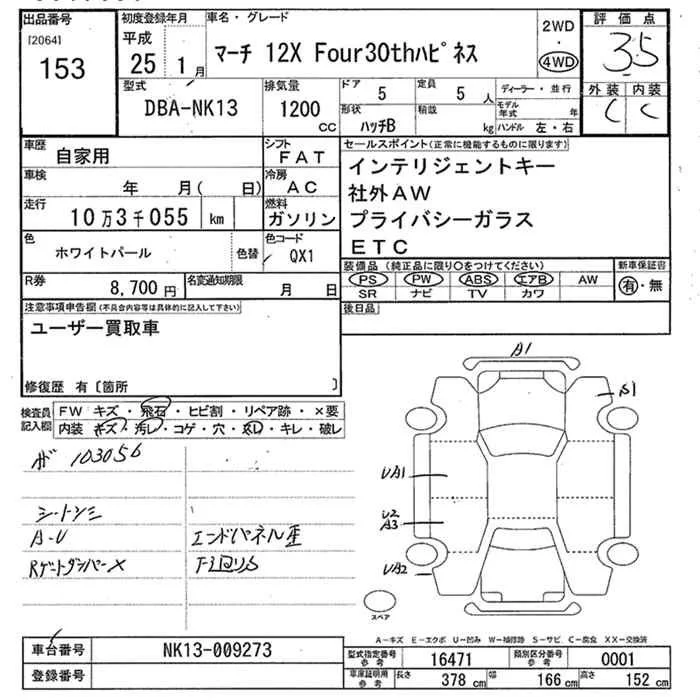 出品番号
[2064]
153
初度登録年月
平成
25 1月
車名・グレード
マーチ 12X Four30thハピネス
2WD
・
4WD
評価点
3.5
外装 内装
C C
型式
DBA-NK13
排気量
1200
CC
ドア 5
定員 5 人
形状
ハッチB
積載
kg
ディーラー・並行
モデル年式 年
ハンドル 左・右
車歴
自家用
シフト
FAT
車検
年 月( 日)
冷房
AC
走行
10万3千055 km
燃料
ガソリン
色
ホワイトパール
色替
色コード
QX1
R券
8,700円
名変通知期限
月 日
セールスポイント(正常に機能するものに限ります)
インテリジェントキー
社外AW
プライバシーガラス
ETC
装備品(純正品に限り○をつけてください)
PS PW ABS エアB AW
SR ナビ TV カワ
新車保証書
有・無
後日品
注意事項申告欄(不具合内容等は具体的に記入して下さい)
ユーザー買取車
修復歴 有〔箇所 〕
検査員記入欄
FW キズ・飛石・ヒビ割・リペア跡・×要
内装 キズ・汚レ・コゲ・穴・スレ・キレ・破レ
103056
シートシミ
A-U
Rゲートダンパー×
エンドパネル歪
下廻りS
A1
A1
UA1
U2
A3
UA2
スペア
A-キズ E-エクボ U-凹み W-補修跡 S-サビ C-腐食 XX-交換済
車台番号
NK13-009273
登録番号
型式指定番号
参考
16471
類別区分番号
参考
0001
車庫証明用
参考
長さ 378 cm
幅 166 cm
高さ 152 cm